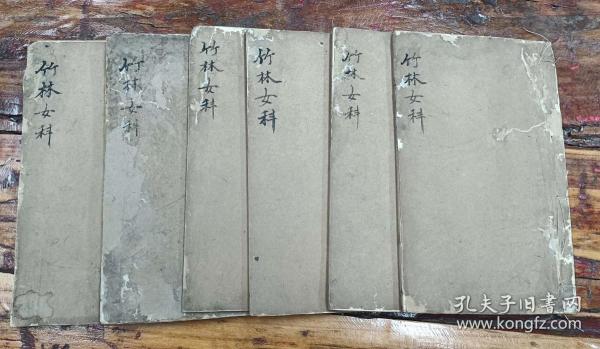 竹林女科
竹林女科
竹林女科
竹林女科
竹林女科
竹林女科
孔夫子旧書网
www.kongfz.com